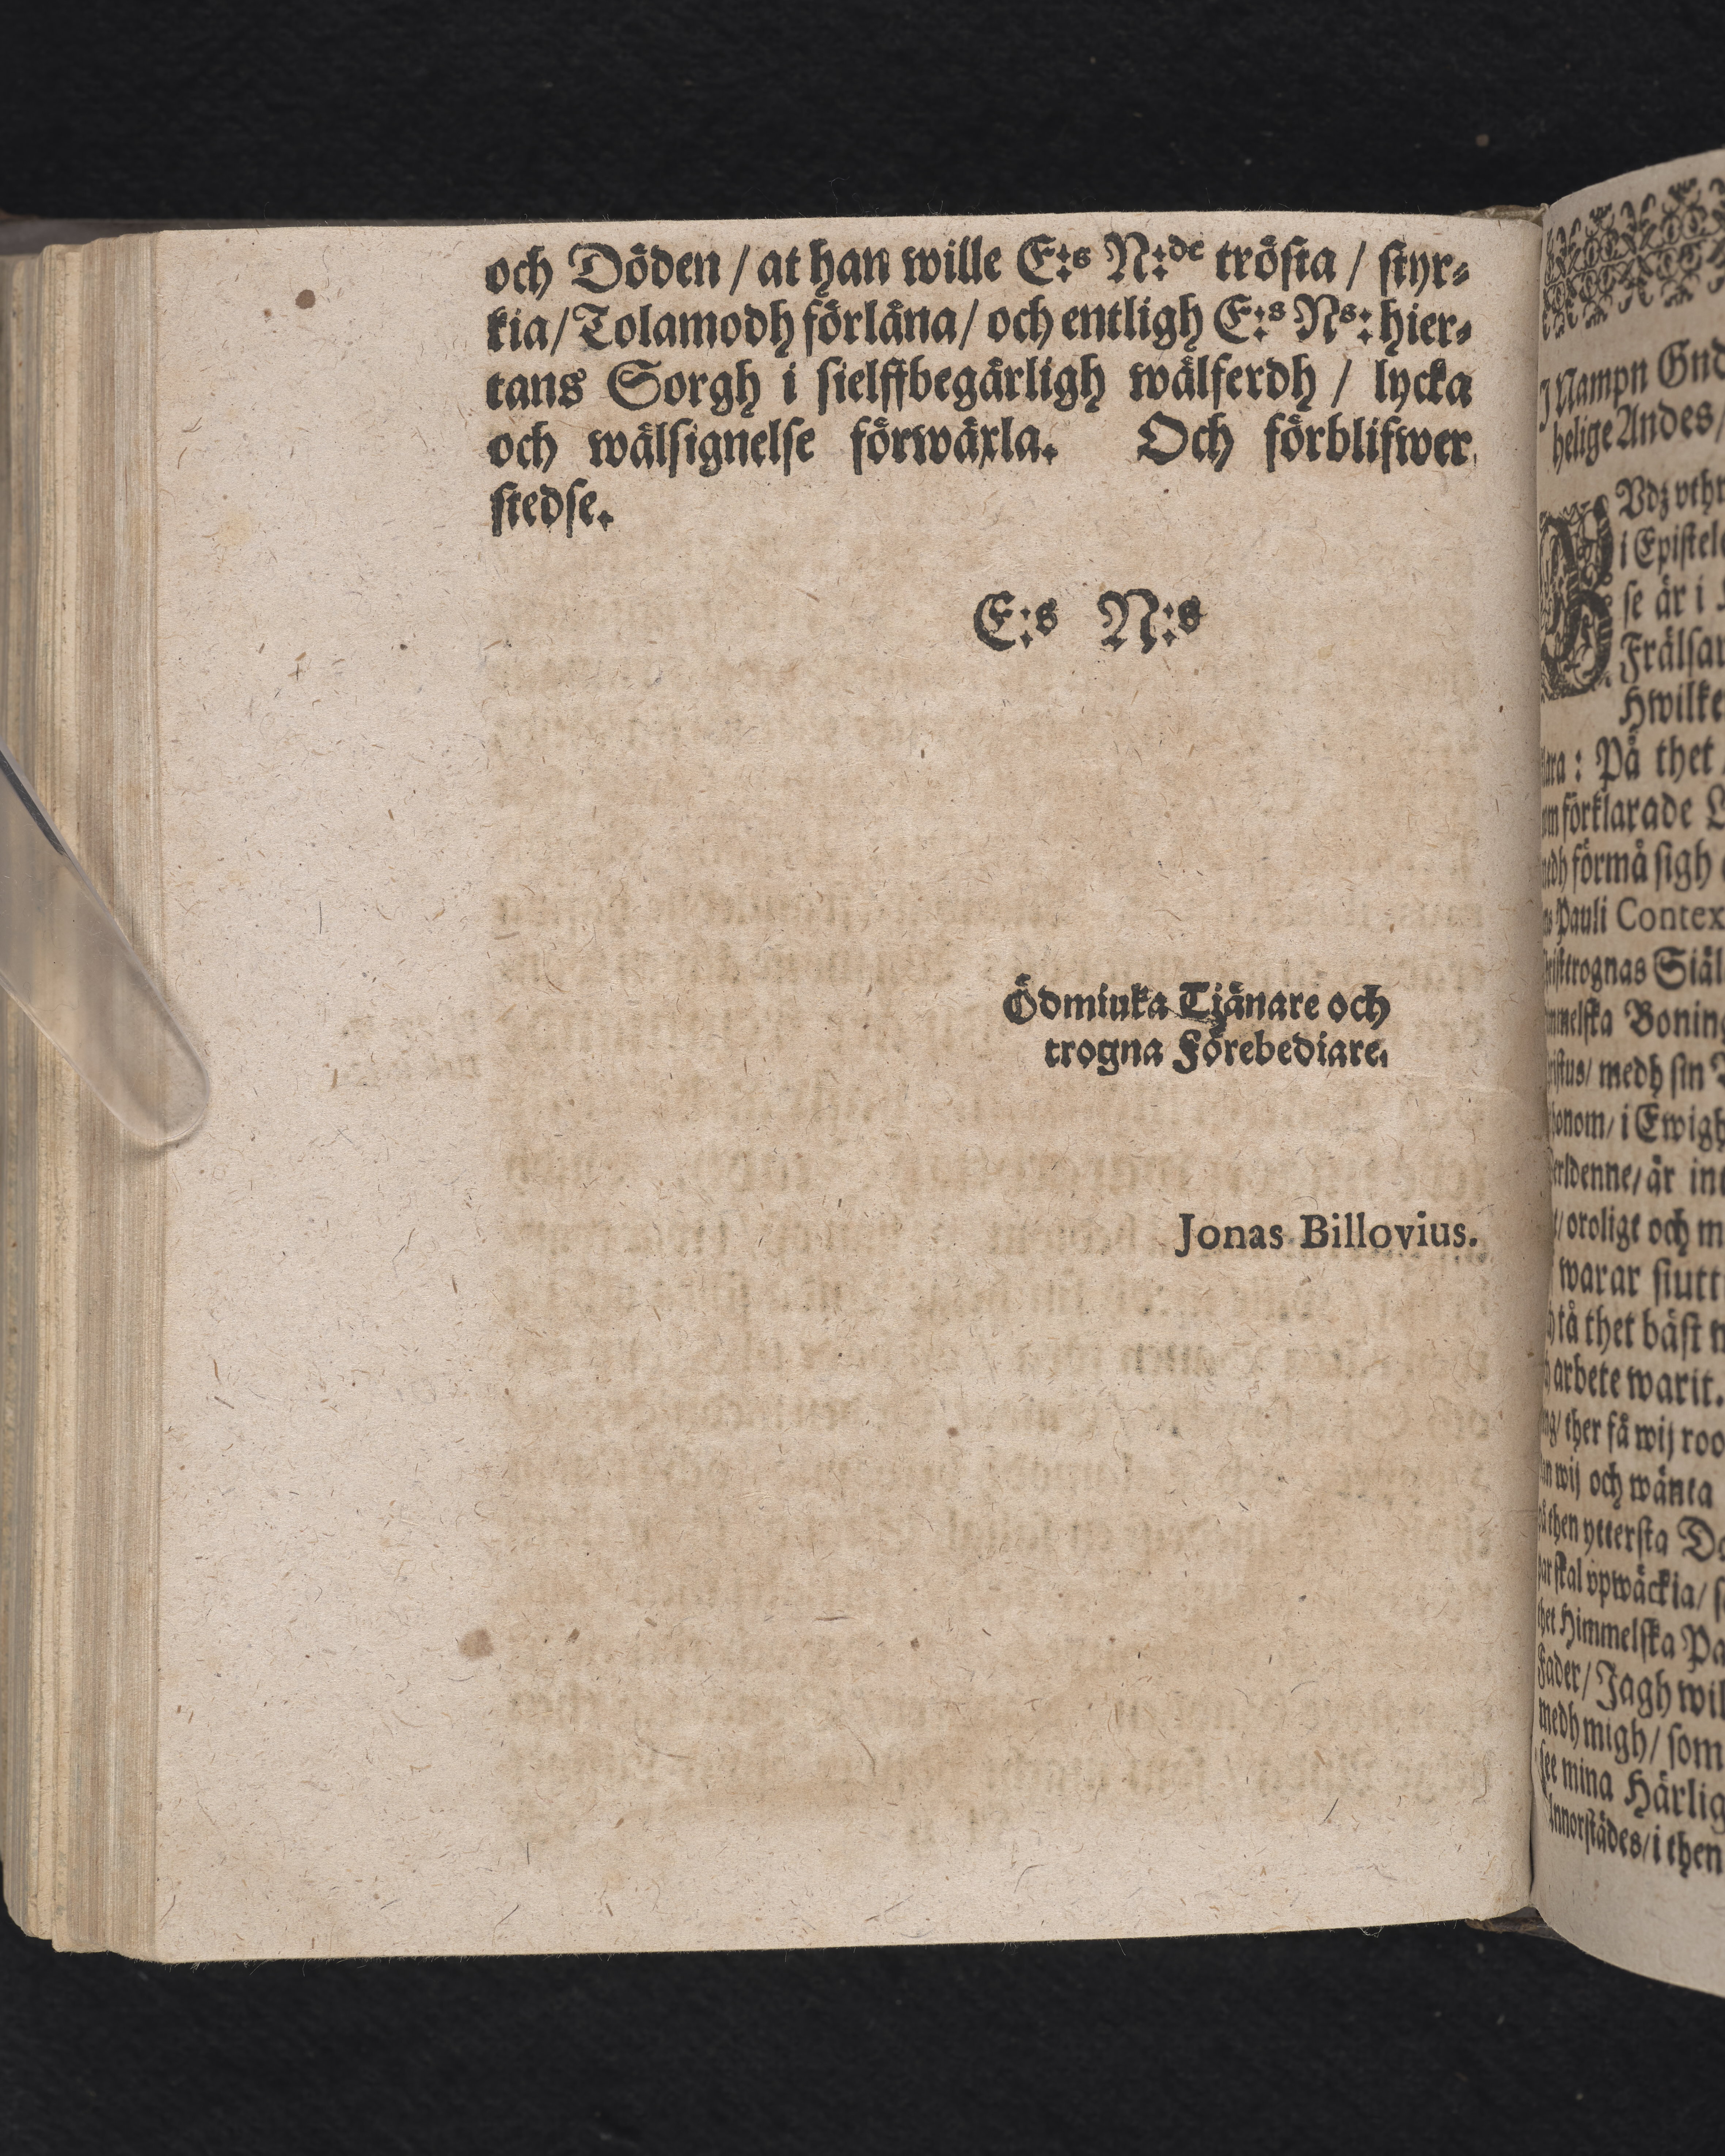 och Döden / at han wille E:s N:de trösta / styr-
kia / Tolamodh förläna / och entligh E:s Ns: hier-
tans Sorgh i sielffbegärligh wälferdh / lycka
och wälsignelse förwäxla. Och förblifwer
stedse.
E:s N:s
Ödmiuka Tjänare och
trogna Förebediare.
Jonas Billovius.
Nampn Gud
helige Andes /
i Epistel
se är i
Frälsar
Hwilke
: På thet
förklarade
förmå sigh
Pauli Contex
Siäl
Boning
medh sin
i Ewigh
är int
oroligt och m
warar stutt
tå thet bäst
arbete warit.
ther få wij roo
wij och wänta
then ytterska
skal vpwäckia /
Himmelska Pa
Jagh wil
medh migh / som
see mina Härlig
i then